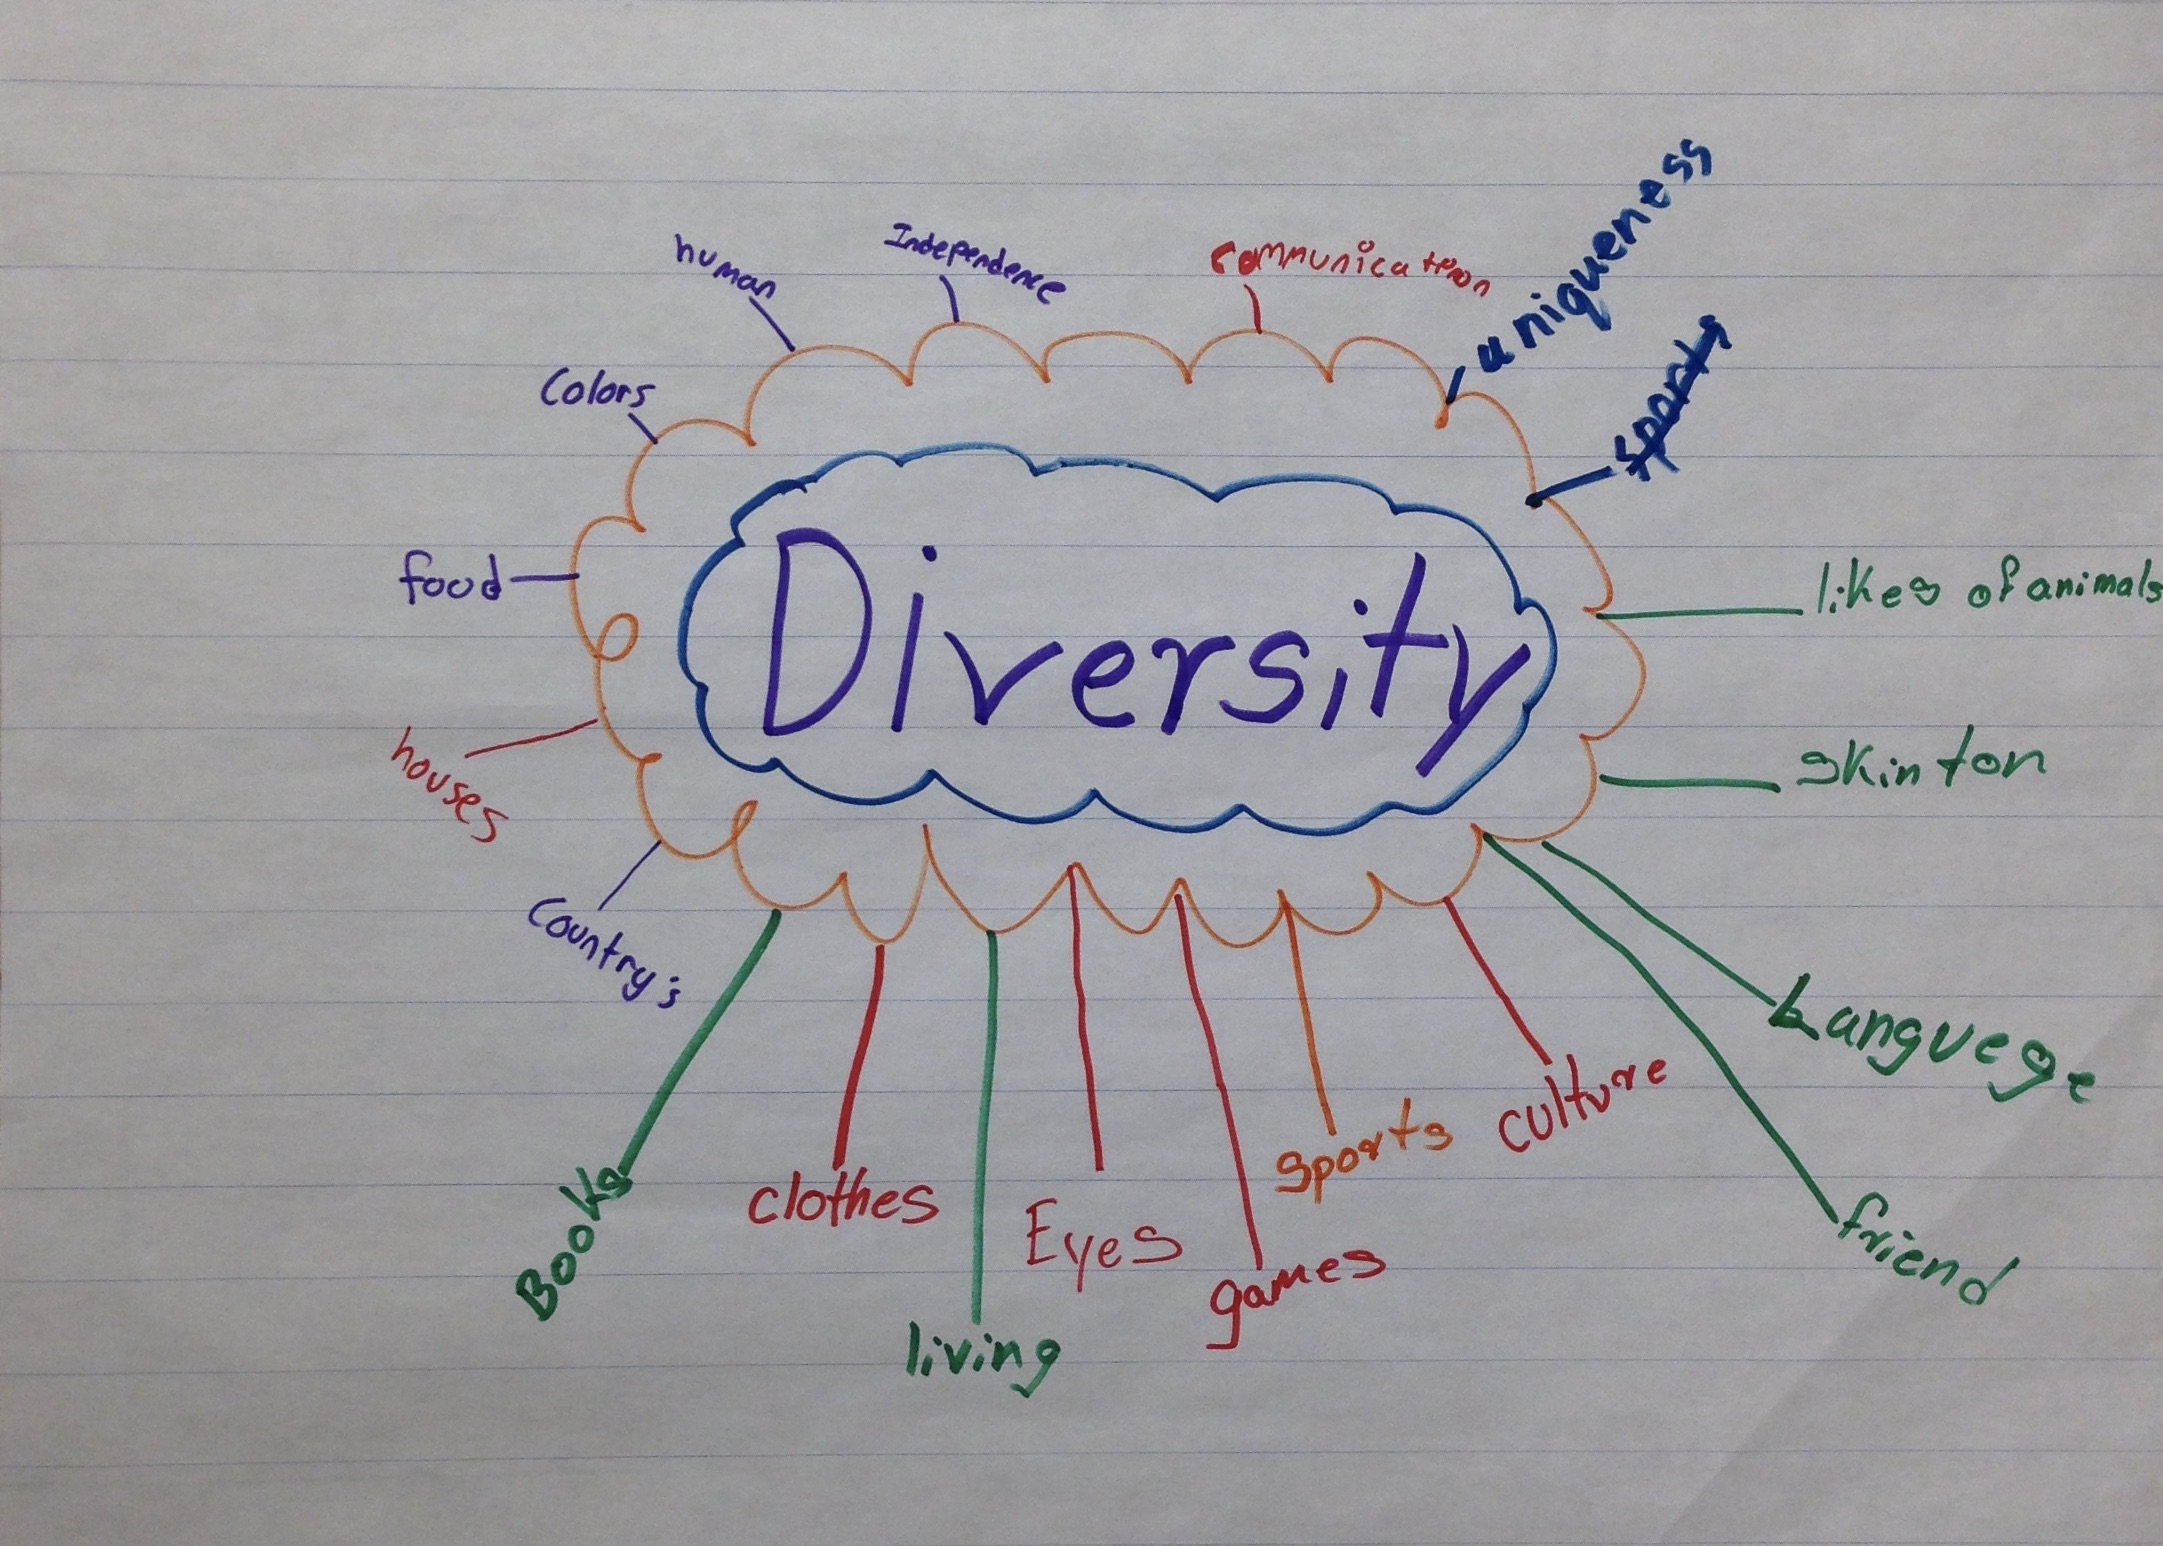 uniqueness
Independence
communication
human
sports
Colors
food
likes of animals
Diversity
houses
skin ton
Country's
Languege
culture
sports
clothes
Books
Eyes
friend
games
living